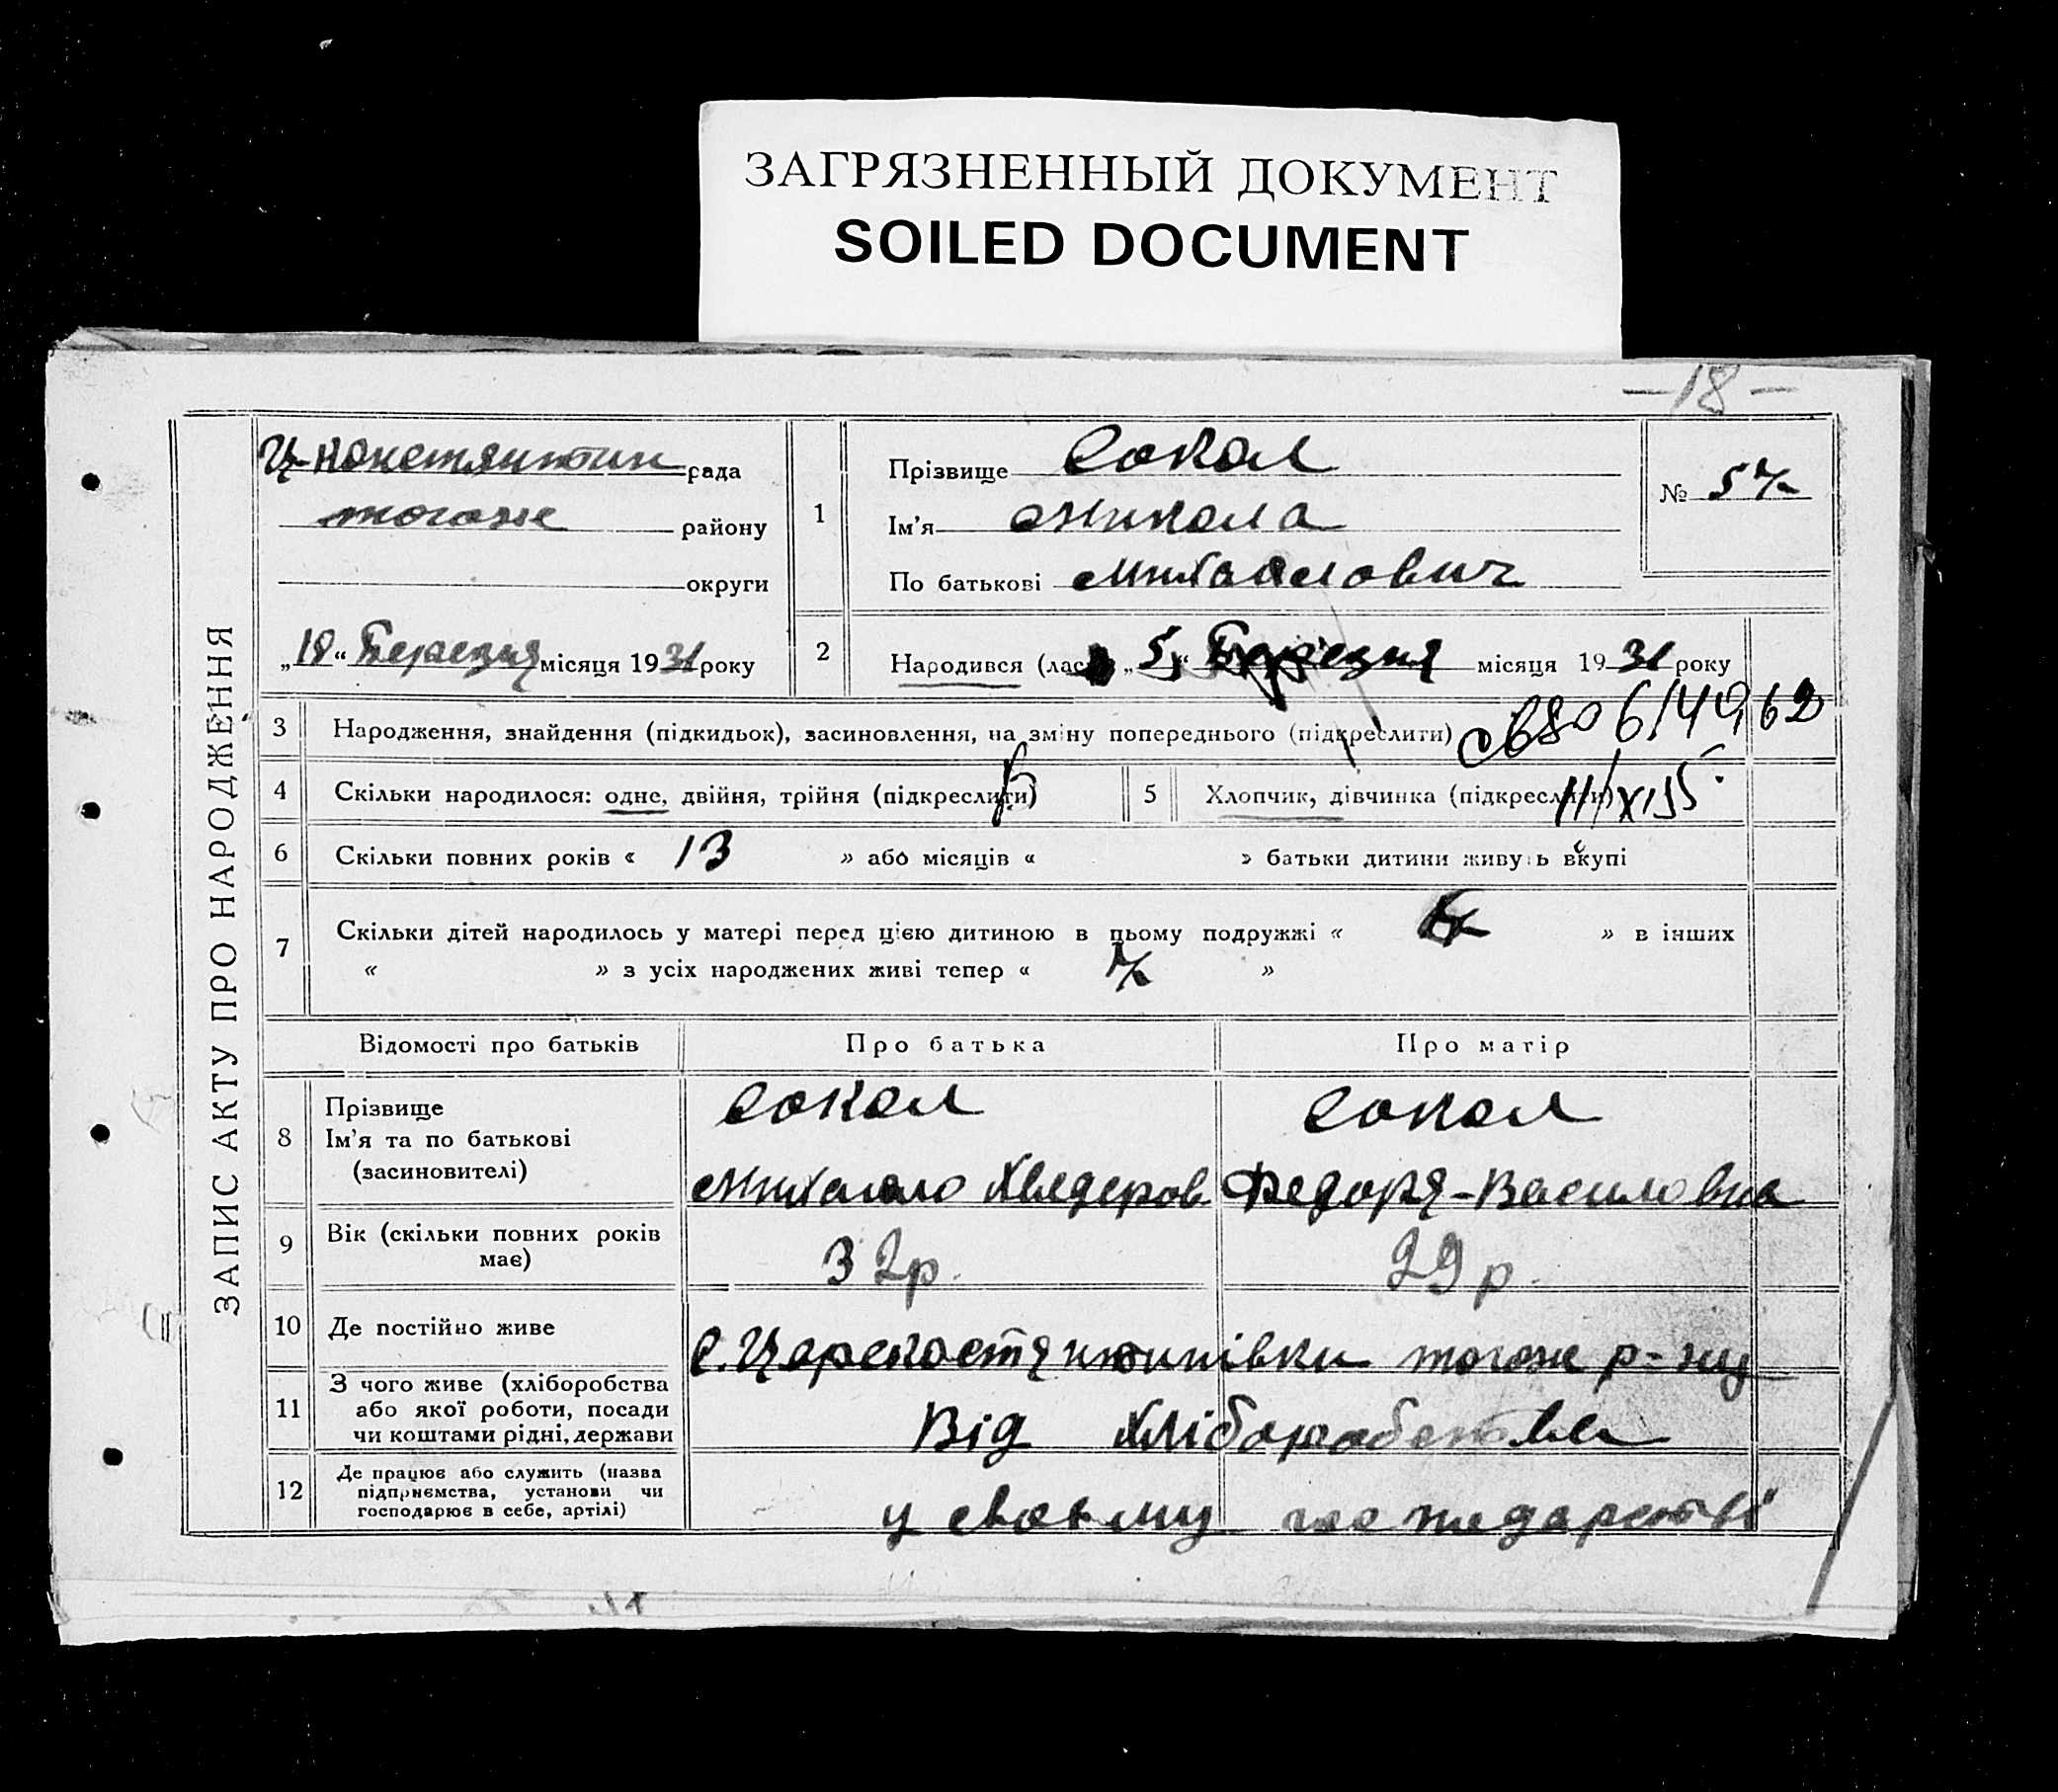 ЗАГРЯЗНЕННЫЙ ДОКУМЕНТ
SOILED DOCUMENT
—18—
ЗАПИС АКТУ ПРО НАРОДЖЕННЯ
рада
тогож району
округи
„18“ Березня місяця 1931 року
1
Прізвище Сокол
Ім'я Микола
По батькові Михайлович
№ 57
2
Народився (лась) „5“ Березня місяця 1931 року
3 Народження, знайдення (підкидьок), засиновлення, на зміну попереднього (підкреслити)
4 Скільки народилося: одне, двійня, трійня (підкреслити) 5 Хлопчик, дівчинка (підкреслити)
6 Скільки повних років « 13 » або місяців « » батьки дитини живуть вкупі
7 Скільки дітей народилось у матері перед цією дитиною в цьому подружжі « » в інших
« » з усіх народжених живі тепер « »
Відомості про батьків Про батька Про матір
8 Прізвище Сокол Сокол
Ім'я та по батькові
(засиновителі) Михайло Хведеров Федоря-Василовна
9 Вік (скільки повних років
має) 32 р. 29 р.
10 Де постійно живе с. Царекостянтинівки тогож р-ну
11 З чого живе (хліборобства
або якої роботи, посади
чи коштами рідні, держави Від хліборобства
12 Де працює або служить (назва
підприємства, установи чи
господарює в себе, артілі) у своєму господарстві